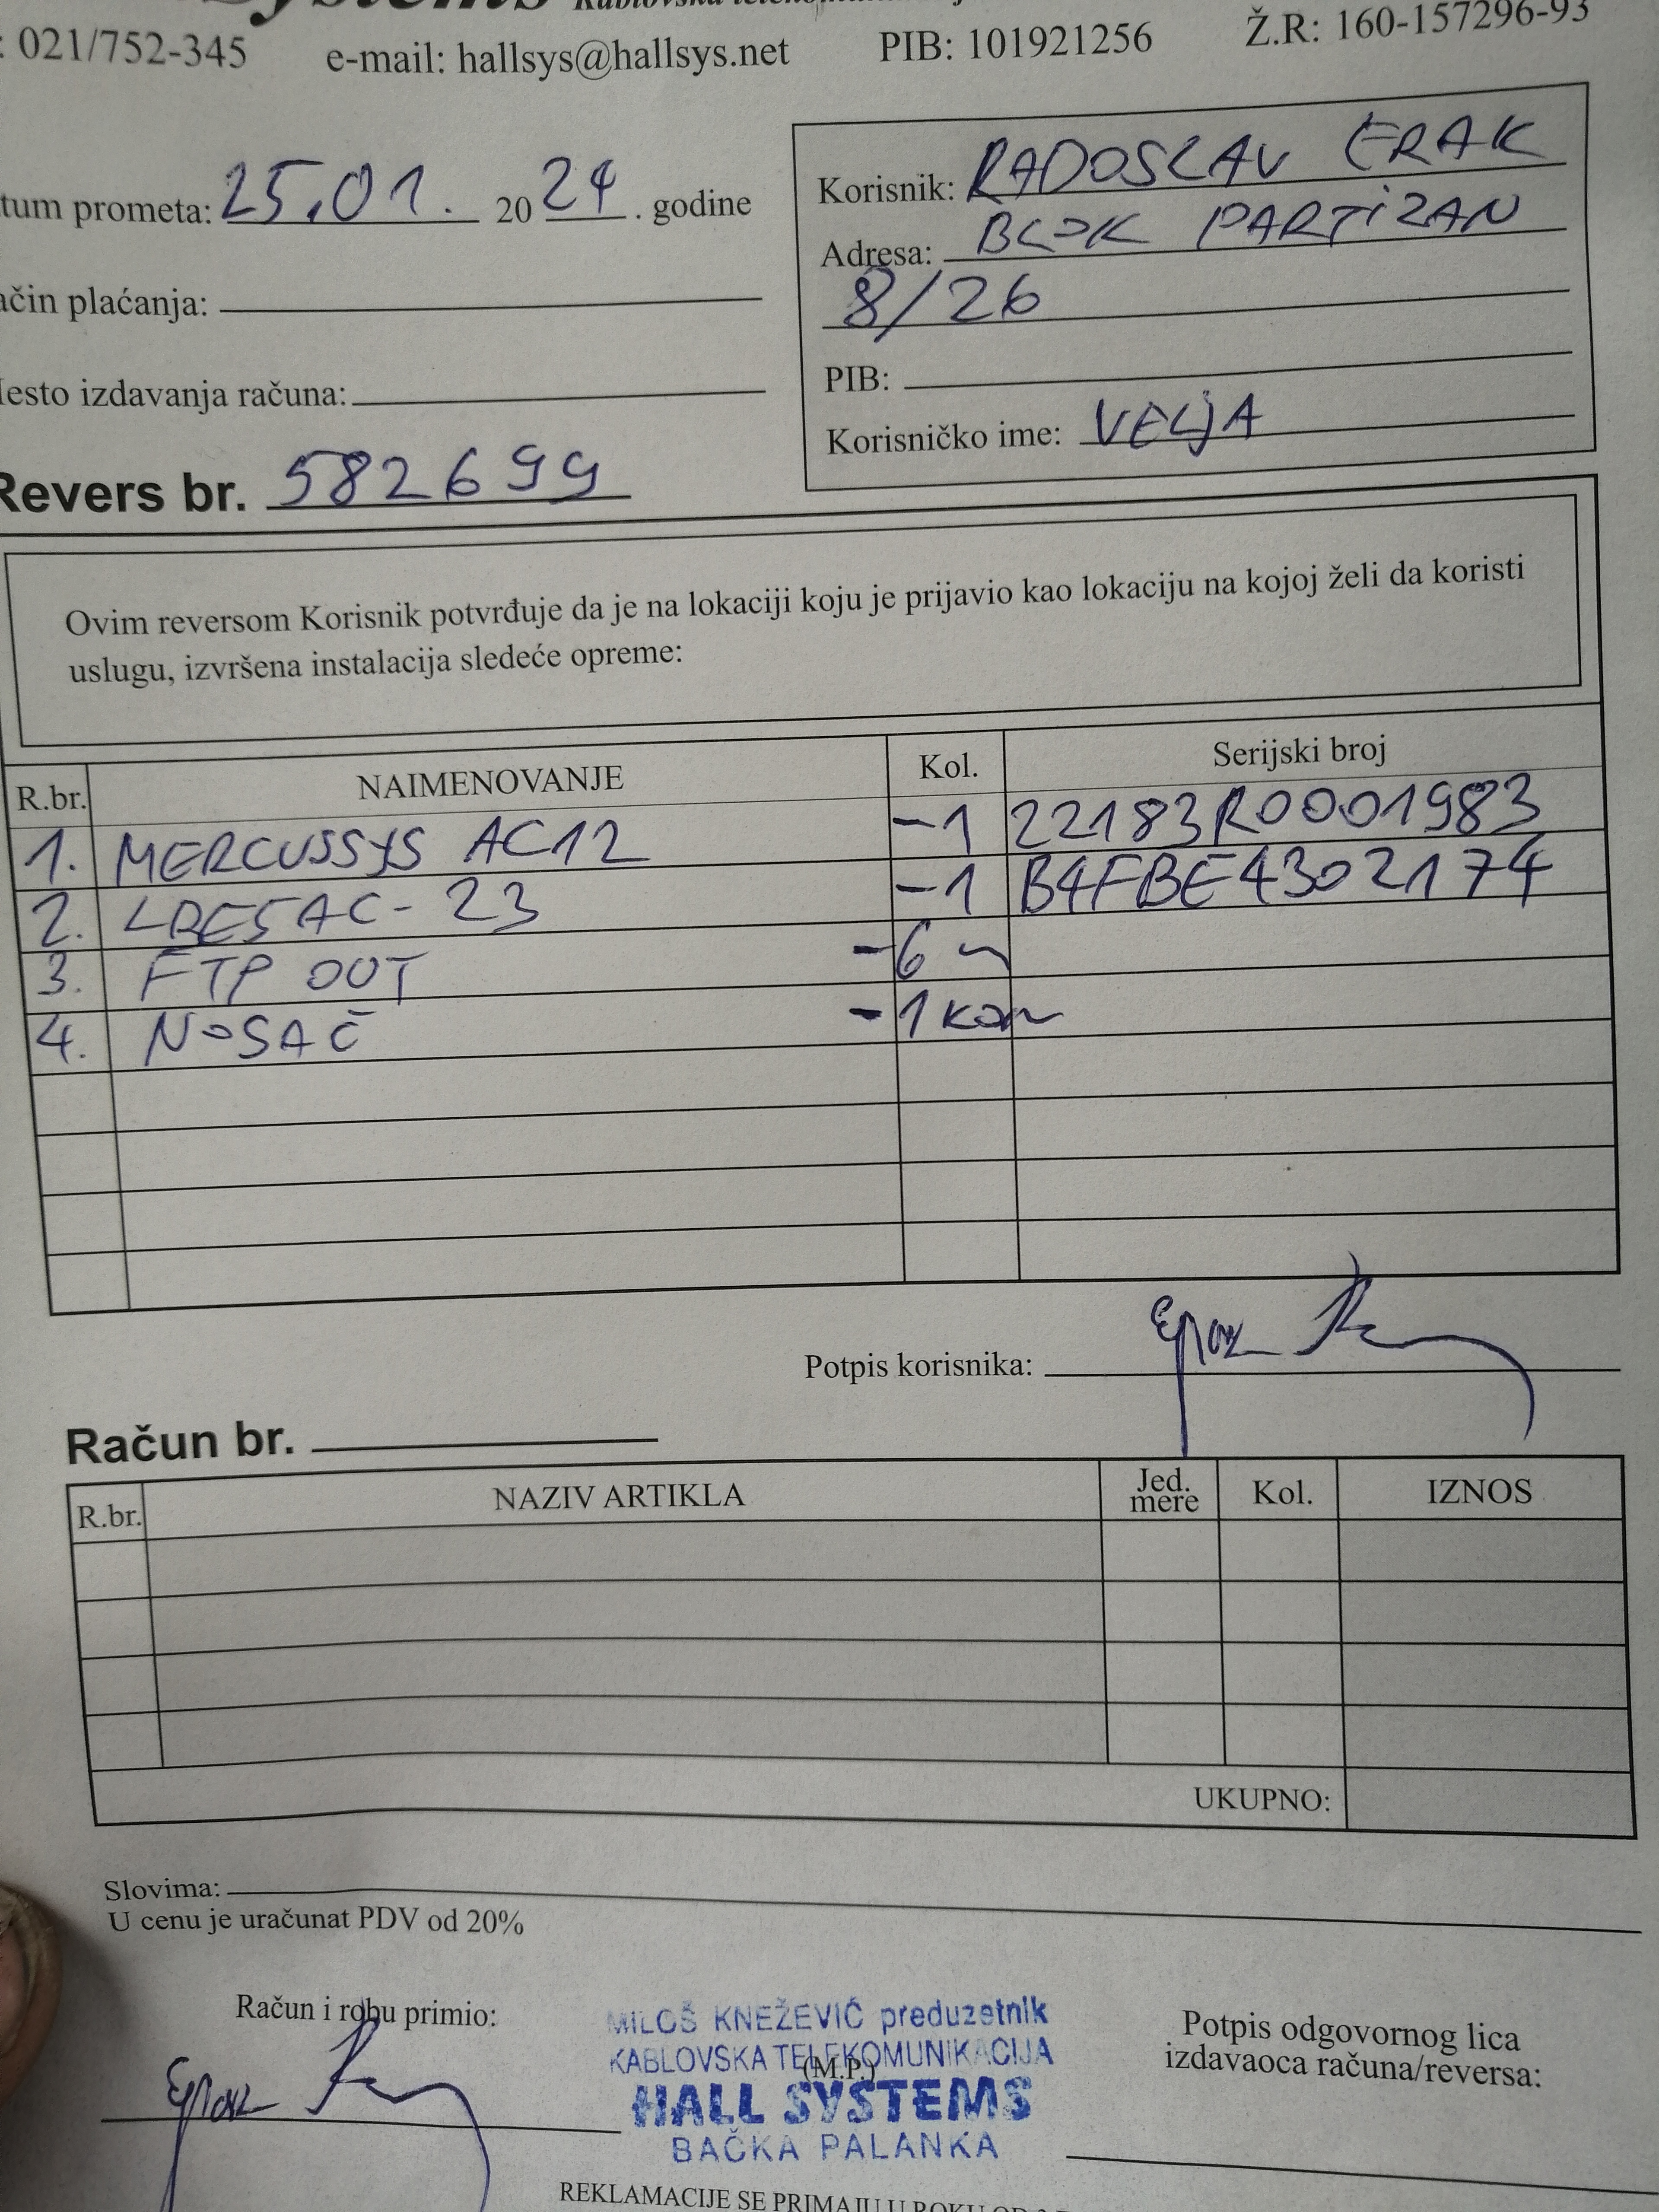 Systems
: 021/752-345 e-mail: hallsys@hallsys.net PIB: 101921256 Ž.R: 160-157296-93
tum prometa: 25.01. 2024. godine
Korisnik: RADOSLAV ERAK
Adresa: BLOK PARTIZAN
8/26
PIB:
Korisničko ime: VELJA
ačin plaćanja:
esto izdavanja računa:
Revers br. 582699
Ovim reversom Korisnik potvrđuje da je na lokaciji koju je prijavio kao lokaciju na kojoj želi da koristi
uslugu, izvršena instalacija sledeće opreme:
R.br. NAIMENOVANJE Kol. Serijski broj
1. MERCUSSYS AC12 -1 22183R0001983
2. LBE5AC-23 -1 B4FBE4302174
3. FTP OUT -6 m
4. NOSAČ -1 kom
Potpis korisnika:
Račun br.
R.br. NAZIV ARTIKLA Jed. mere Kol. IZNOS
UKUPNO:
Slovima:
U cenu je uračunat PDV od 20%
Račun i robu primio:
MILOŠ KNEŽEVIĆ preduzetnik
KABLOVSKA TELEKOMUNIKACIJA
(M.P.)
HALL SYSTEMS
BAČKA PALANKA
Potpis odgovornog lica
izdavaoca računa/reversa:
REKLAMACIJE SE PRIMAJU U ROKU OD